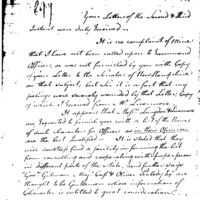 Your Letters of the Second & Third
Instant were duly Received.
It is no complaint of Mine
that I have not been called upon to Recommend
Officers, or was not furnished by you with Copy
of your Letter to the Senators of New Hampshire
on that subject, but Sir it is a fact that my
feelings were severely wounded by that Letter, Copy
of which I received from a Mr. Livermore.
It appears that Messrs.
are requested to furnish you with a list of the Names
of such characters for Officers as in their Opinion
are the best Qualified. It is stated that they
will not find a facility in forming the list
from consulting and cooperating with
in different parts of the State,
Govr. Gilman, Majr. Cass & Oliver Peabody Esq are
thought to be Gentlemen whose information
of Character is entitled to great
consideration."